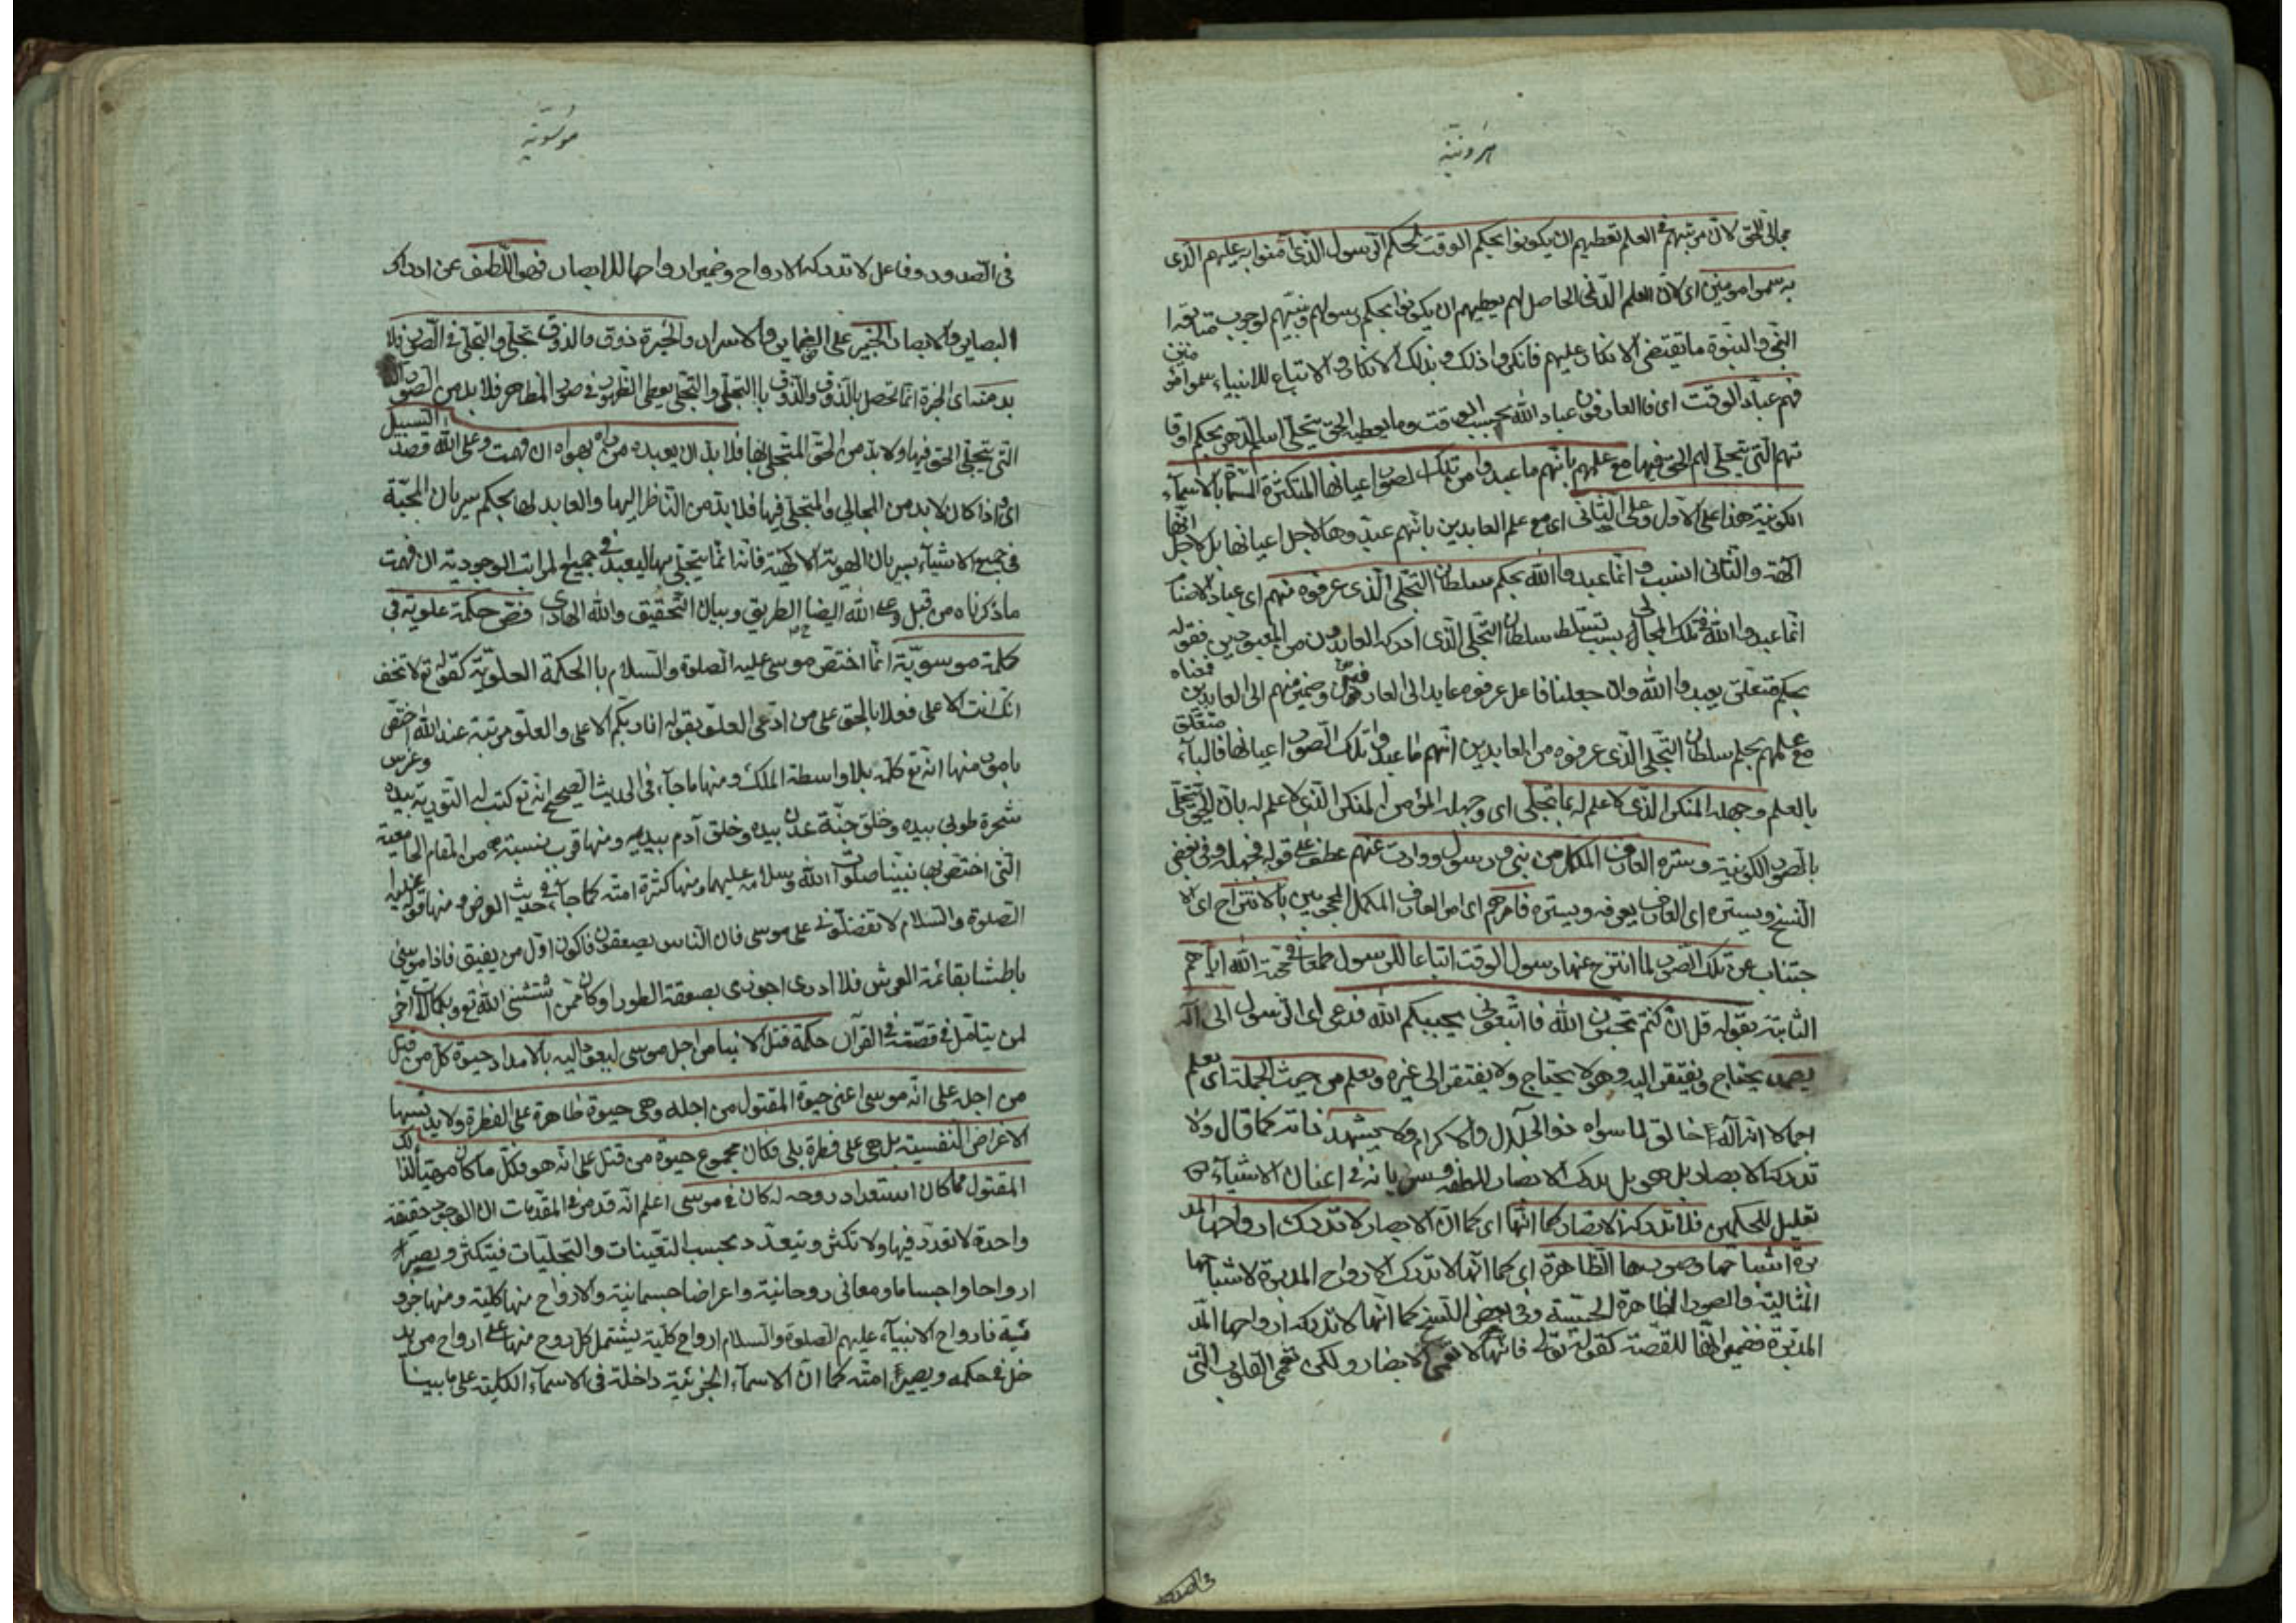 هرونية
مجالى للحق لان مرتبتهم فى العلم تعطيهم ان يكونوا بحكم الوقت لحكم الرسول الذى آمنوا به عليهم الذى
به سموا مومنين اى لان العلم الذى الحاصل لهم يعطيهم ان يكونوا بحكم رسولهم ونبيهم لوجوب متابعة
النبى والنبوة ما تقتضى الانكار عليهم فانكروا ذلك وبذلك الانكار والاتباع للانبياء سموا مؤمنين
فهم عباد الوقت اى فالعارفون عباد الله بحسب الوقت وما يعطيه الحق بتجلى اسم الدهر بحكم اوقا
تهم التى يتجلى لهم الحق فيها مع علمهم بانهم ما عبدوا من تلك الصور اعيانها المتكثرة المسماة بالاسماء
الكونية هذا على الاول وعلى الثانى اى مع علم العابدين بانهم عبدوها لا لاجل اعيانها بل لاجل انها
آلهة والثانى انسب وانما عبدوا الله بحكم سلطان التجلى الذى عرفوه منهم اى عباد الاصنام
انما عبدوا الله فى تلك المجالى بسبب تسلط سلطان التجلى الذى ادركه العابدون من المعبودين فقوله
بحكم متعلق بعبدوا الله وان جعلنا فاعل عرفوه عايدا الى العارفين وضمير منهم الى العابدين فمعناه
مع علمهم بحكم سلطان التجلى الذى عرفوه من العابدين انهم ما عبدوا تلك الصور اعيانها فالباء متعلق
بالعلم وجهله المنكر الذى لا علم له بما تجلى اى وجهله المؤمن المنكر الذى لا علم له بان الحق يتجلى
بالصور الكونية وستره العارف المكمل من نبى ورسول ووارث عنهم عطف على قوله فجهله وفى بعض
النسخ ويستره اى العارف يعرفه ويستره فامرهم اى امر العارف المكمل المحجوبين بالانتزاح اى الا
جتناب عن تلك الصور لما انتزح عنها رسول الوقت اتباعا للرسول طمعا فى محبة الله اياهم
الثابتة بقوله قل ان كنتم تحبون الله فاتبعونى يحببكم الله فدعى اى الرسول الى اله
يصمد يحتاج ويفتقر اليه وهو لا يحتاج ولا يفتقر الى غيره ويعلم من حيث الجملة اى يعلم
اجمالا انه اله خالق لما سواه ذو الجلال والاكرام ولا يشهد ذاته كما قال ولا
تدركه الابصار بل هو يدرك الابصار للطفه وسريانه فى اعيان الاشياء
تعليل للحكمين فلا تدركه الابصار كما انها اى كما ان الابصار لا تدرك ارواحها المد
برة اشباحها وصورها الظاهرة اى كما انها لا تدرك الارواح المدبرة لاشباحها
المثالية والصور الظاهرة الحسية وفى بعض النسخ كما انها لا تدركه ارواحها المد
المدبرة فضمير انها للقصة كقوله تعالى فانها لا تعمى الابصار ولكن تعمى القلوب التى
فى الصدور
موسوية
فى الصدور وفاعل لا تدركه الارواح وضمير ارواحها للابصار فهو اللطيف عن ادراك
البصاير والابصار الخبير على الضماير والاسرار والخبرة ذوق والذوق تجلى والتجلى فى الصور فلا
بد منه اى الخبرة انما تحصل بالذوق والذوق بالتجلى والتجلى يعطى الظهور فى صور المظاهر فلا بد من الصور
التى يتجلى الحق فيها ولا بد من الحق المتجلى لها فلا بد ان يعبده من رآه بهواه ان فهمت وعلى الله قصد السبيل
اى واذا كان لا بد من المجالى والمتجلى فيها فلا بد من الناظر اليها والعابد لها بحكم سريان المحبة
فى جميع الاشياء بسريان الهوية الالهية فانه انما يتجلى بها ليعبد فى جميع المراتب الوجودية ان فهمت
ما ذكرناه من قبل وعلى الله ايضا الطريق وبيان التحقيق والله الهادى فص حكمة علوية فى
كلمة موسوية انما اختص موسى عليه الصلوة والسلام بالحكمة العلوية كقوله تع لا تخف
انك انت الاعلى فعلا بالحق على من ادعى العلو بقوله انا ربكم الاعلى والعلو مرتبة عند الله اختص
بامور منها انه تع كلمه بلا واسطة الملك ومنها ما جاء فى الحديث الصحيح انه تع كتب له التورية بيده وغرس
شجرة طوبى بيده وخلق جنة عدن بيده وخلق آدم بيديه ومنها قرب نسبته من المقام الجامعية
التى اختص بها نبينا صلوات الله وسلامه عليهما ومنها كثرة امته كما جاء فى حديث العرض ومنها قوله عليه
الصلوة والسلام لا تفضلونى على موسى فان الناس يصعقون فاكون اول من يفيق فاذا موسى
باطشا بقائمة العرش فلا ادرى اجوزى بصعقة الطور او كان ممن استثنى الله تع وبكمالات اخر
لمن يتامل فى قصته فى القرآن حكمة قتل الابناء من اجل موسى ليعود اليه بالامداد حيوة كل من قتل
من اجله على انه موسى اعنى حيوة المقتول من اجله وهى حيوة طاهرة على الفطرة ولا يدنسها
الاعراض النفسية بل هى على فطرة بلى فكان مجموع حيوة من قتل على انه هو فكل ما كان مهيأ لذلك
المقتول مما كان استعداد روحه له كان فى موسى اعلم انه قد مر فى المقدمات ان الوجود حقيقة
واحدة لا تعدد فيها ولا تكثر ويتعدد بحسب التعينات والتجليات فيتكثر ويصير
ارواحا واجساما ومعانى روحانية واعراضا جسمانية والارواح منها كلية ومنها جز
ئية فارواح الانبياء عليهم الصلوة والسلام ارواح كلية يشتمل كل روح منها على ارواح من يد
خل فى حكمه ويصير امته كما ان الاسماء الجزئية داخلة فى الاسماء الكلية على ما بينا